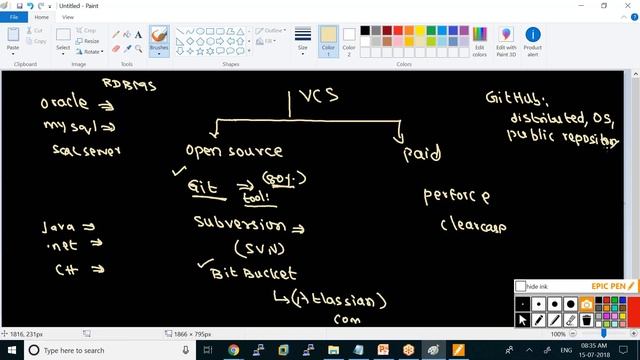 Untitled - Paint
File Home View
Paste
Clipboard
Crop
Resize
Rotate
Select
Image
Tools
Brushes
Outline
Fill
Shapes
Size
Color 1
Color 2
Colors
Edit colors
Edit with Paint 3D
Product alert
RDBMS
VCS
oracle ⇒
mysql ⇒
sqlserver
GitHub:
distributed, OS,
public repository
open source
paid
Git ⇒ (80%)
tool:
perforce
Subversion ⇒
clearcase
(SVN)
Java ⇒
.net ⇒
C++ ⇒
BitBucket
(Atlassian)
com
hide ink
EPIC PEN
1816, 231px
1866 × 795px
100%
Type here to search
ENG
08:35 AM
15-07-2018